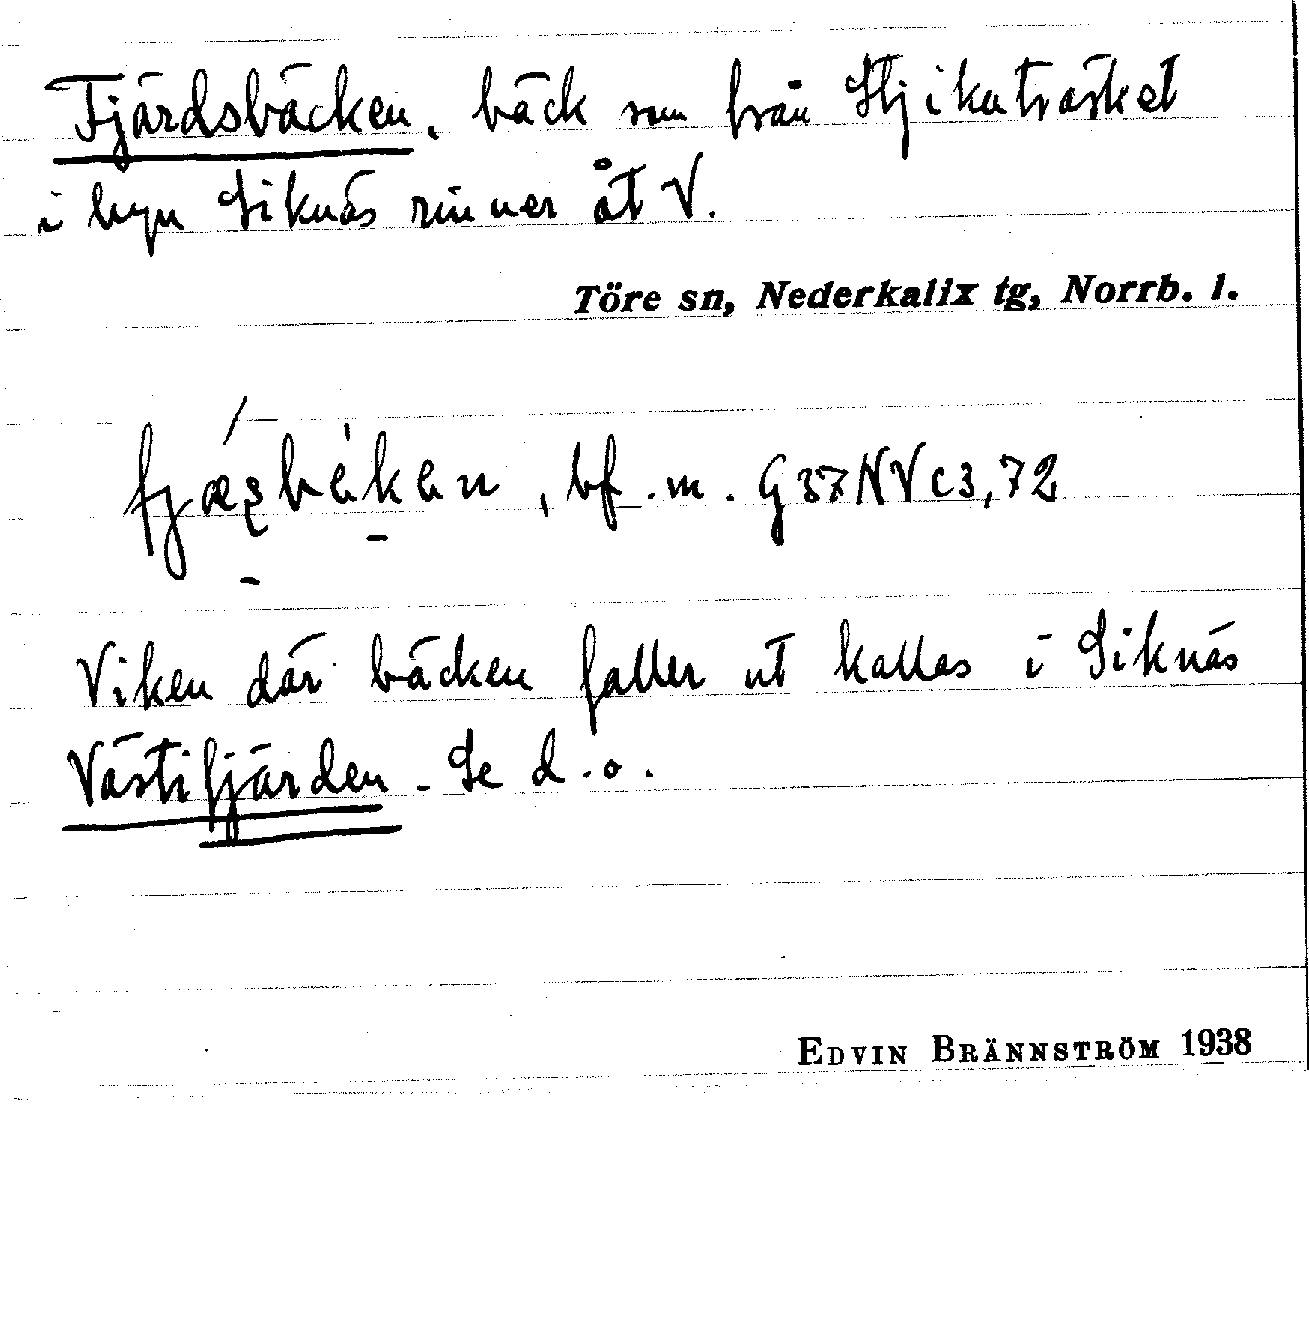 Fjärdsbäcken, bäck som från Stjikuträsket
i byn Siknäs rinner åt V.
Töre sn, Nederkalix tg, Norrb. l.
bf. m. G37NVc3,72
Viken där bäcken faller ut kallas i Siknäs
Västifjärden. Se d.o.
EDVIN BRÄNNSTRÖM 1938